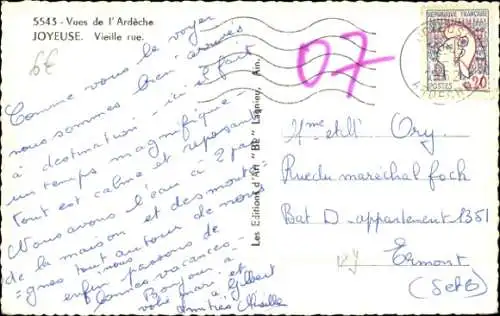 5543 - Vues de l'Ardèche
JOYEUSE. Vieille rue.
6€
Comme vous le voyez
nous sommes bien arrivés
à destination. ici il fait
un temps magnifique.
Tout est calme et reposant
Nous avons l'eau à 2 pas
de la maison et des monta-
gnes tout autour de nous
nous
enfin passons de
bonnes vacances.
Bonjour à
votre mari et
à Gilbert
Amitiés
Les Editions d'Art "BE" Lagnieu, Ain.
07
REPUBLIQUE FRANÇAISE
POSTES
0,20
Ory
Rue du maréchal foch
Bat D - appartement 1351
Ermont
(S et O)